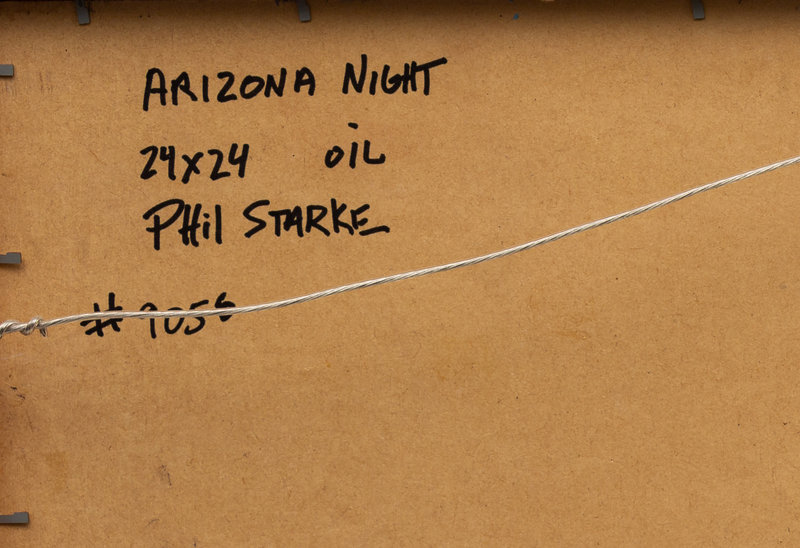 ARIZONA NIGHT
24x24 OIL
PHIL STARKE